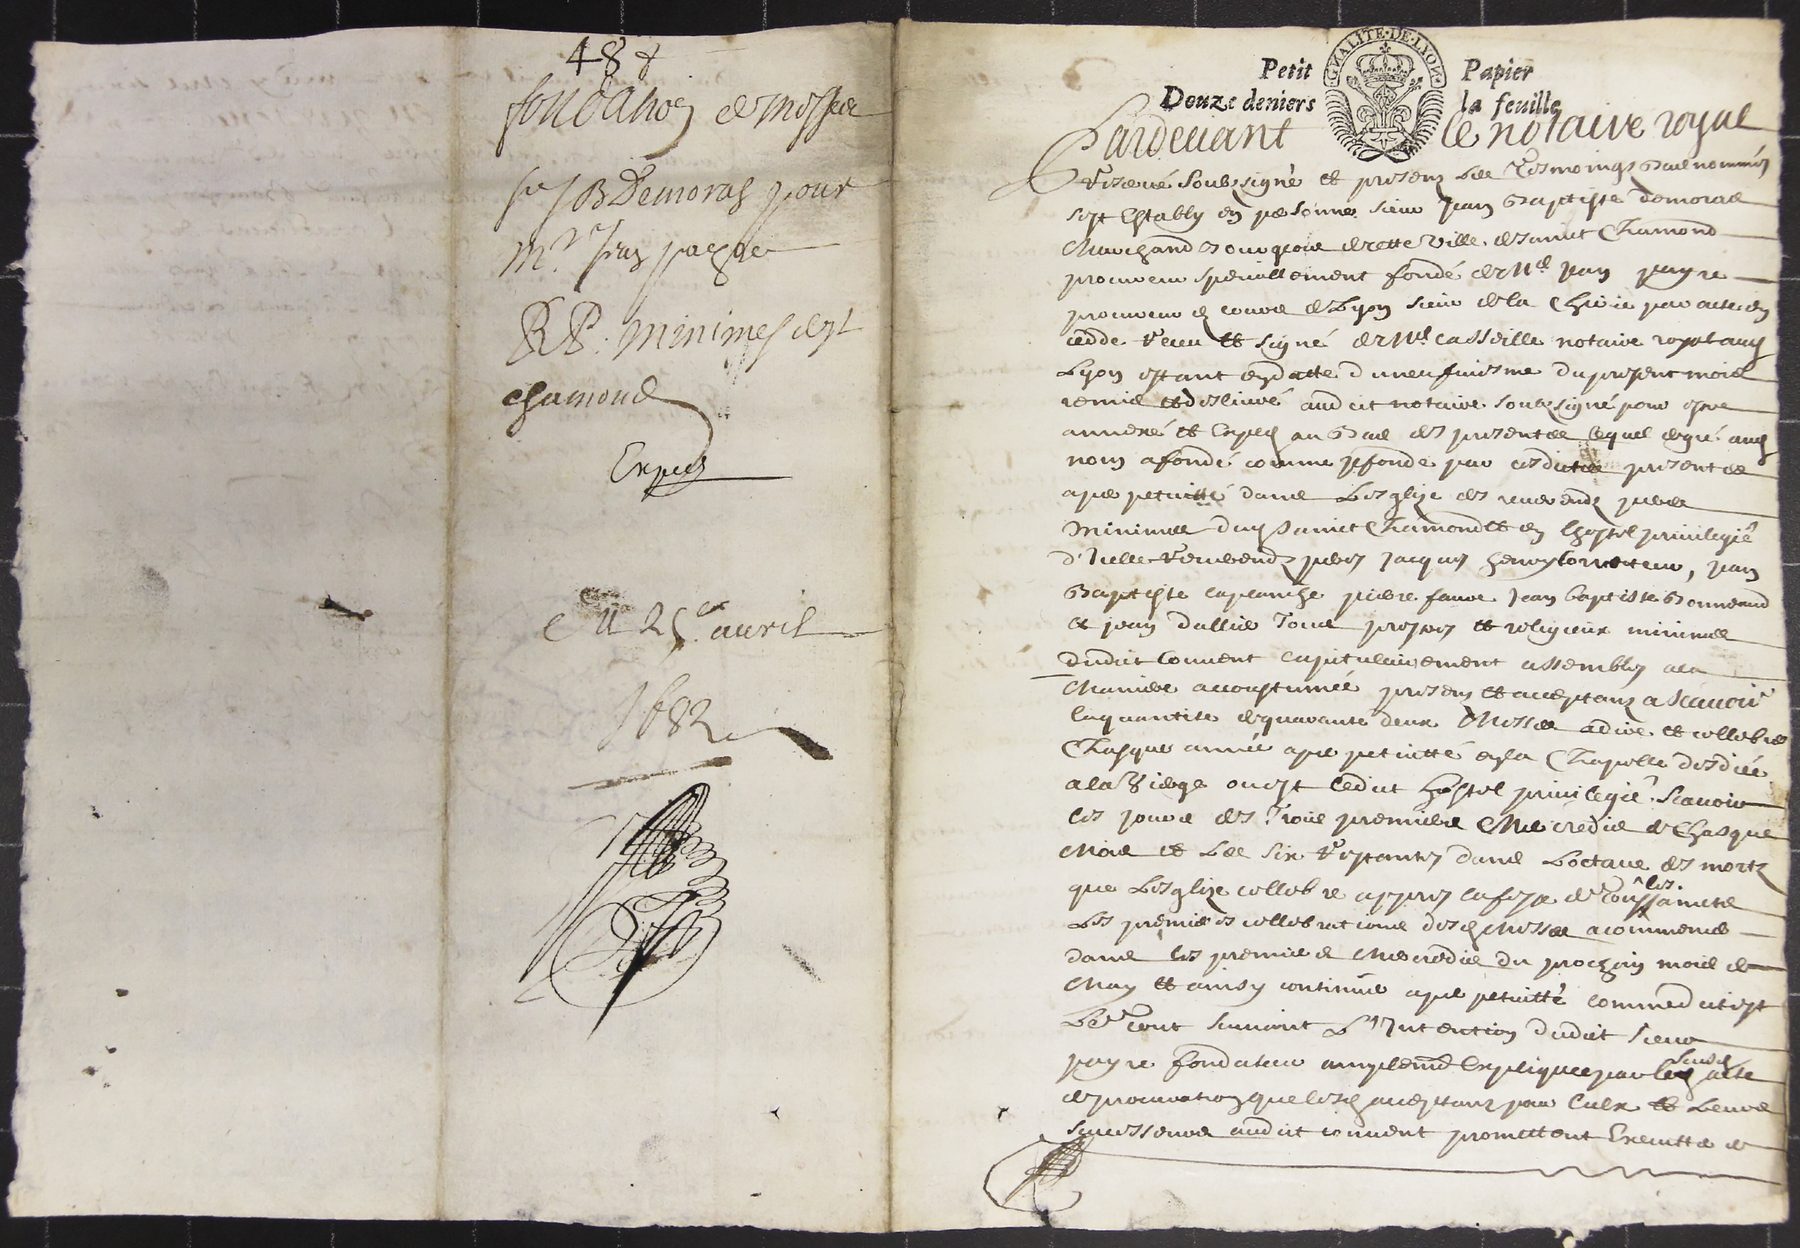 48
fondation de messes
Sr J B Demoras pour
Mr Jean payre
RR. P. minimes de St
chamond
Expedie
du 25e avril
1682
GNALITE·DE·LYON
Petit Papier
Douze deniers la feuille
Pardevant le notaire royal
reservé soubzsigné et presens les tesmoings bas nommés
sest estably en personne sieur jean baptiste demoras
marchand bourgeois de cette ville de sainct Chamond
procureur speciallement fondé de Me jean payre
procureur es cours de Lyon sieur de la par acte en
receu et signé de Me notaire royal aud
Lyon estant en datte du neufviesme du present mois
remis et deslivré audit notaire soubzsigné pour estre
annexé et au bas des presentes lequel de gré aud
nom a fondé comme il fonde par ces dictes presentes
a perpetuitté dans Lesglise des reverendz peres
Minimes dud sainct Chamond et en lhostel privilegié
d'Icelle reverendz peres jacques henry correcteur, jean
Baptiste pierre faure jean baptiste bonnand
et jean dallie tous prestres et religieux minimes
dudit Couvent capitulairement assemblés a la
maniere accoustumée presens et acceptans a scavoir
la quantité de quarante deux Messes a dire et cellebrer
Chasque année a perpetuitté en la Chapelle desdiée
a la Vierge ou est ledit hostel privilegié. scavoir
les jours des trois premiers Mecredis de Chasque
Mois et Les six restantes dans Loctave des mortz
que Lesglize cellebre appres la feste de toussaincts
les
Les premieres cellebrations desd Messes a commencer
dans les premiers Mecredis du prochain mois de
May et ainsy continuer a perpetuitté comme dit est
Le tout suivant L'Intention dudit sieur
payre fondateur amplement Expliquée par lesd acte
susd
de procuration que lesd acceptans pour eulx et Leurs
successeurs audit couvent promettent Executter de